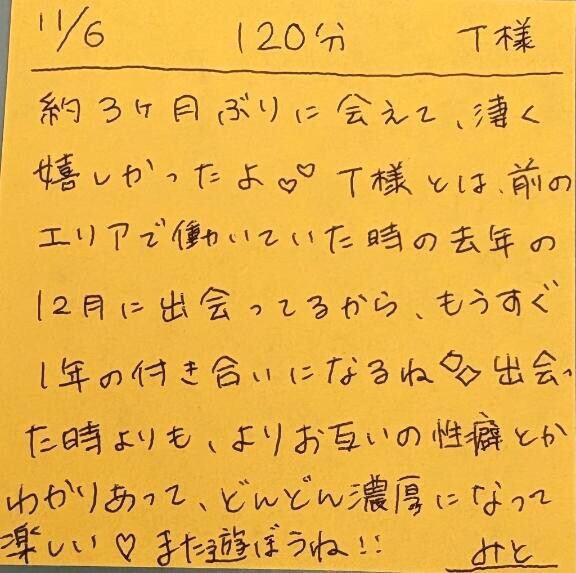 11/6 120分 T様
約3ヶ月ぶりに会えて、凄く
嬉しかったよ♡♡ T様とは、前の
エリアで働いていた時の去年の
12月に出会ってるから、もうすぐ
1年の付き合いになるね◇◇ 出会っ
た時よりも、よりお互いの性癖とか
わかりあって、どんどん濃厚になって
楽しい♡ また遊ぼうね!!
みと